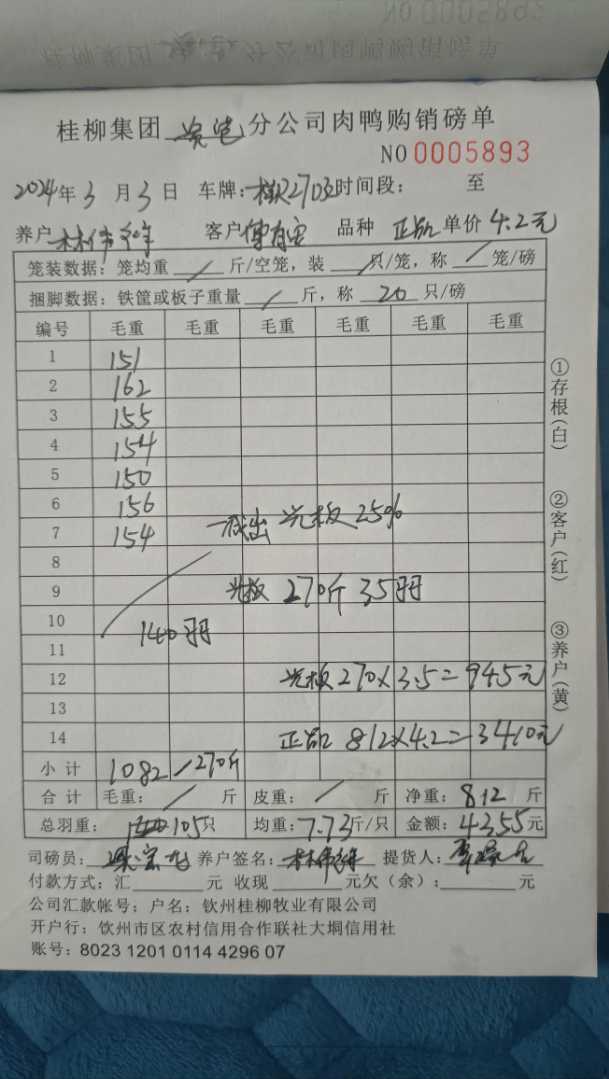 桂柳集团 分公司肉鸭购销磅单
NO 0005893
2024年3月3日 车牌: 2703 时间段: 至
养户 林伟 客户 品种 正品 单价 4.2元
笼装数据: 笼均重 / 斤/空笼, 装 / 只/笼, 称 / 笼/磅
捆脚数据: 铁筐或板子重量 / 斤, 称 20 只/磅
编号 毛重 毛重 毛重 毛重 毛重 毛重
1 151
2 162
3 155
4 154
5 150
6 156
7 154 减出光板25%
8
9 光板 270斤 35羽
10
11 140羽
12 光板270×3.5=945元
13
14 正品 812×4.2=3410元
小计 1082/270斤
合计 毛重: / 斤 皮重: / 斤 净重: 812 斤
总羽重: 105只 均重: 7.73斤/只 金额: 4355元
司磅员: 养户签名: 林伟 提货人:
付款方式: 汇 元 收现 元欠(余): 元
公司汇款帐号: 户名: 钦州桂柳牧业有限公司
开户行: 钦州市区农村信用合作联社大垌信用社
账号: 8023 1201 0114 4296 07
①存根(白)
②客户(红)
③养户(黄)